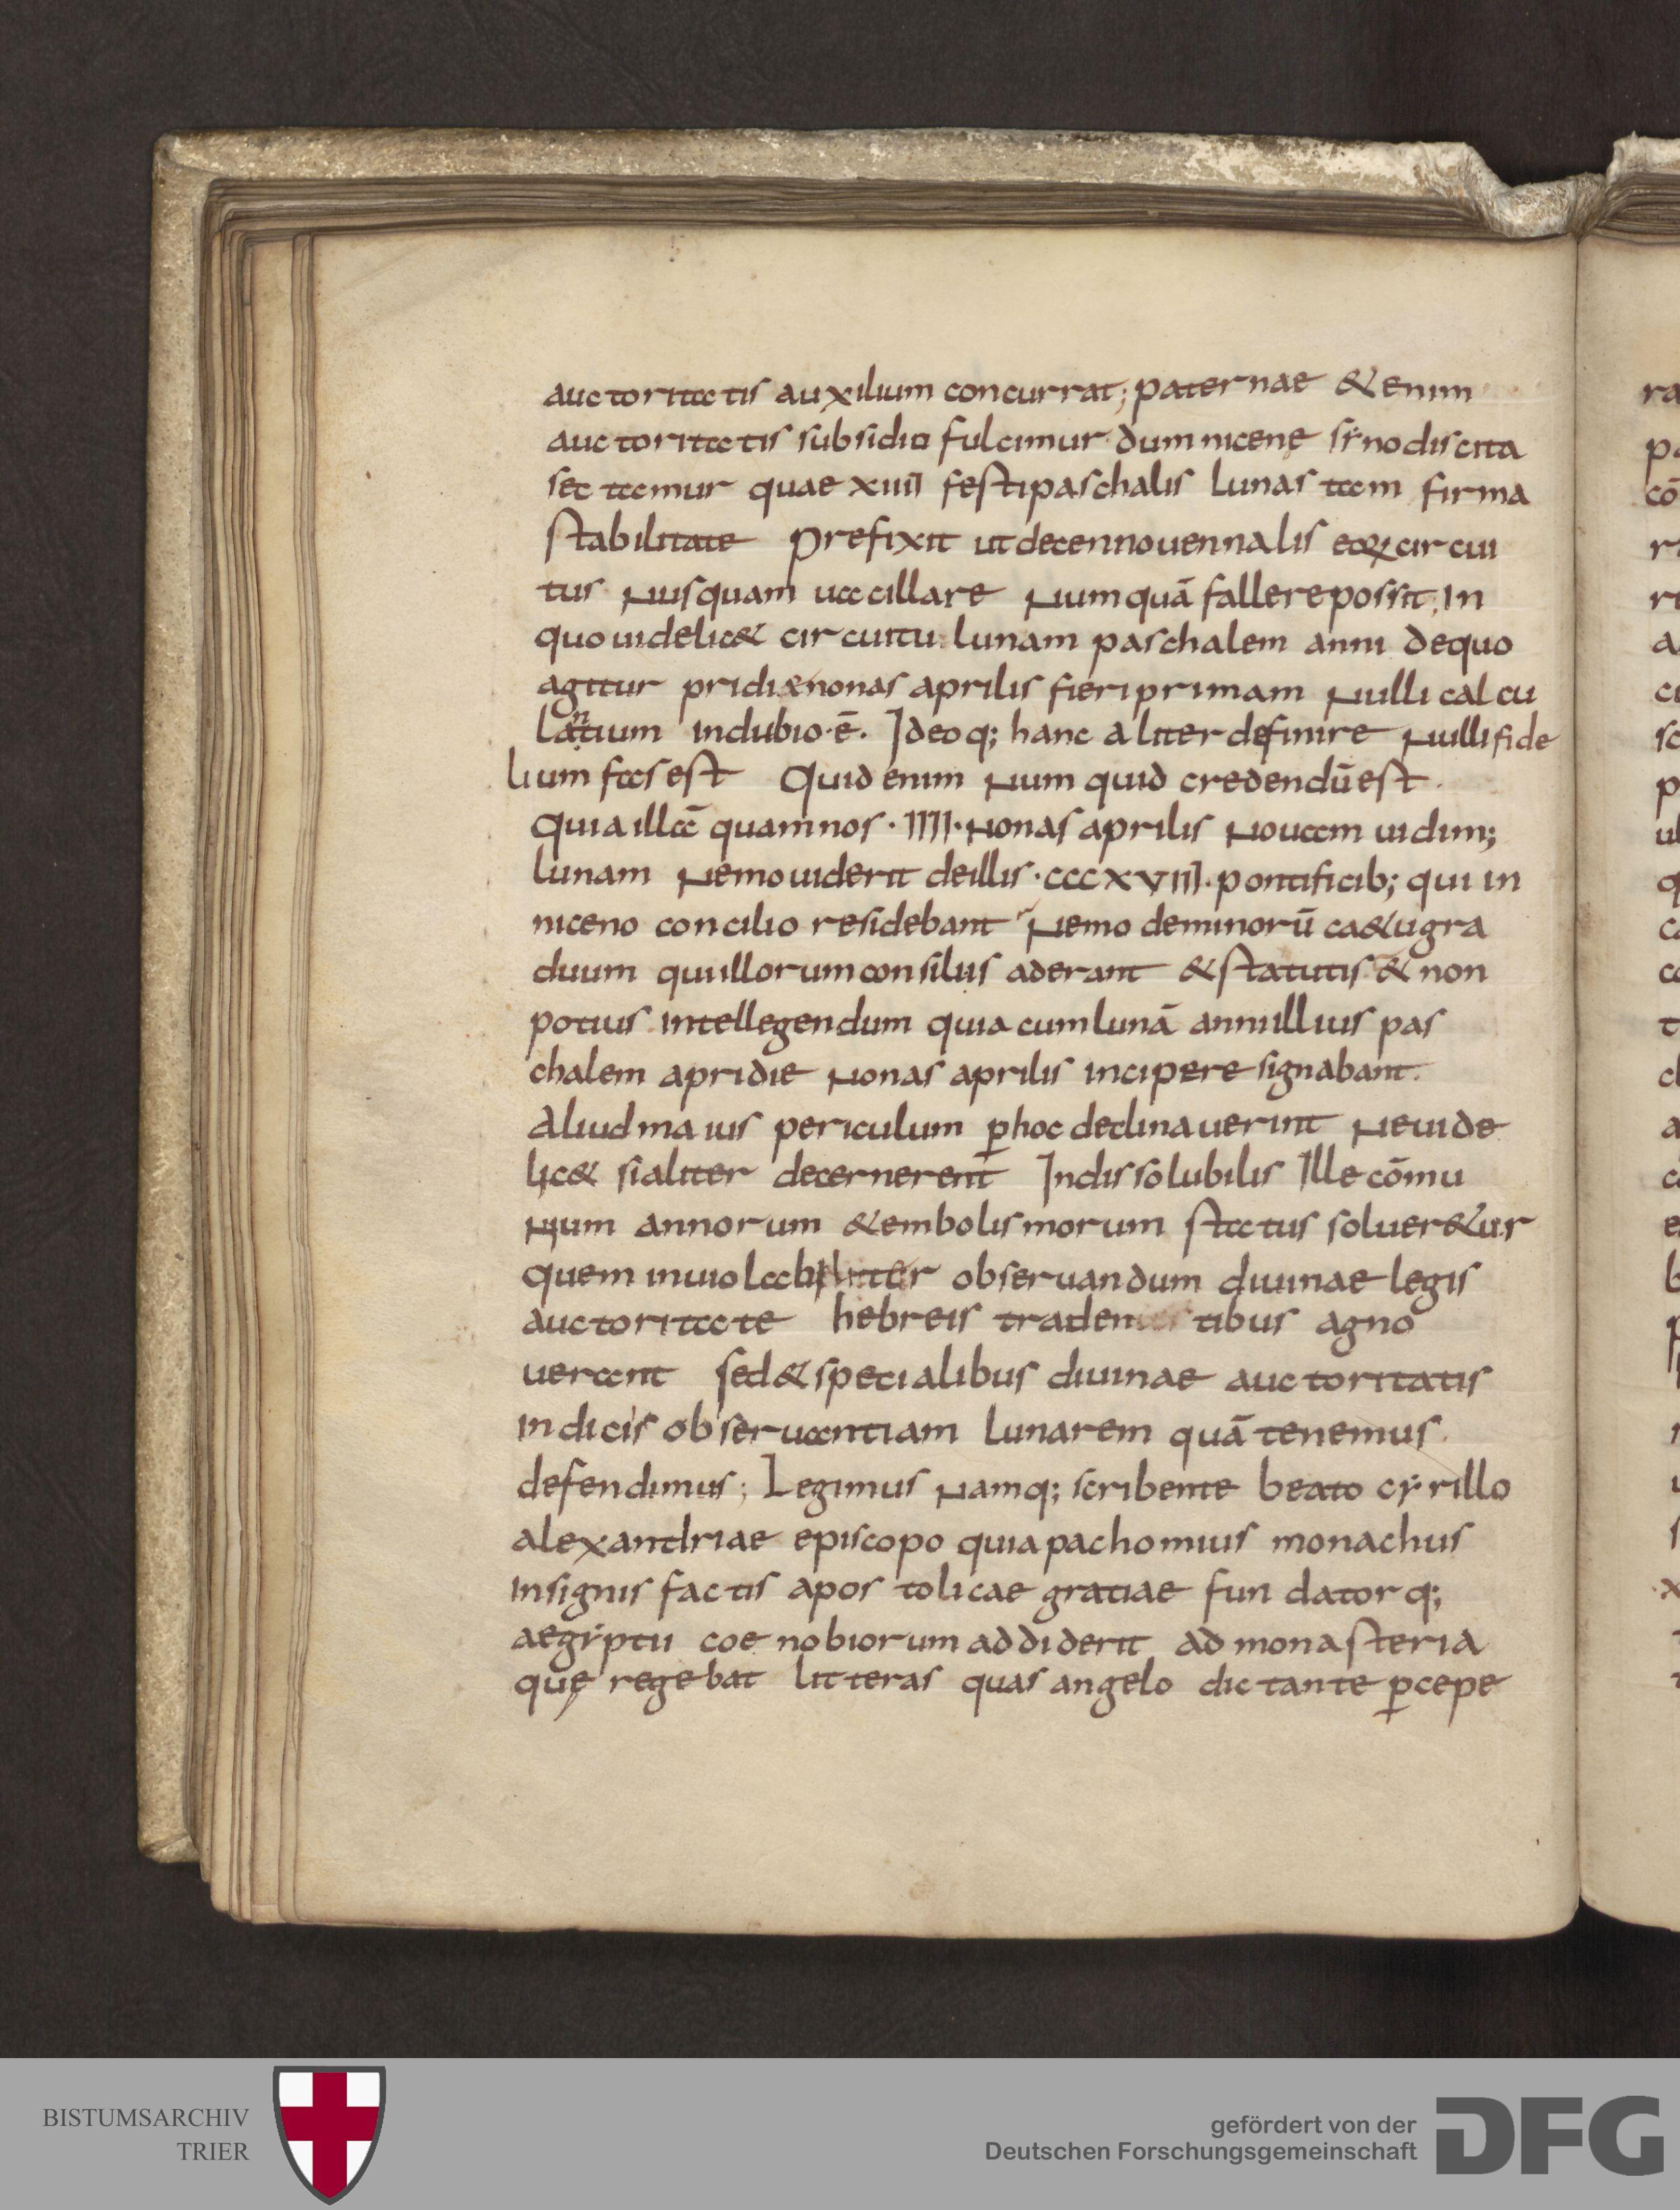 auctoritatis auxilium concurrat; paternae & enim
auctoritatis subsidio fulcimur dum nicenę sẏnodi scita
sectamur quae xiiii festi paschalis lunas tam firma
stabilitate prefixit ut decennouennalis eaq; circui
tus nusquam uacillare numquā fallere possit; In
quo uidelic& circuitu lunam paschalem anni de quo
agitur pridiae nonas aprilis fieri primam nulli calcu
lantium in dubio·ē. Ideoq; hanc aliter definire nulli fide
lium fas est Quid enim num quid credendū est
quia illā quam nos·IIII·nonas aprilis nouam uidim;
lunam nemo uiderit de illis·cccxviii·pontificib; qui in
niceno concilio residebant nemo de minorū ca&u gra
duum qui illorum consiliis aderant & statutis & non
potius intellegendum quia cum lunā anni illius pas
chalem a pridie nonas aprilis incipere signabant.
Aliud maius periculum p hoc declinauerint ne uide
lic& si aliter decernerent Indissolubilis Ille cōmu
nium annorum & embolismorum status soluer&ur
quem inuiolabiliter obseruandum diuinae legis
auctoritate hebreis tradentibus agno
uerant sed & specialibus diuinae auctoritatis
indiciis obseruantiam lunarem quā tenemus
defendimus; Legimus namq; scribente beato cẏrillo
alexandriae episcopo quia pachomius monachus
insignis factis apostolicae gratiae fundatorq;
aegẏptii coenobiorum addiderit ad monasteria
quę regebat litteras quas angelo dictante pcepe
BISTUMSARCHIV
TRIER
gefördert von der
Deutschen Forschungsgemeinschaft
DFG